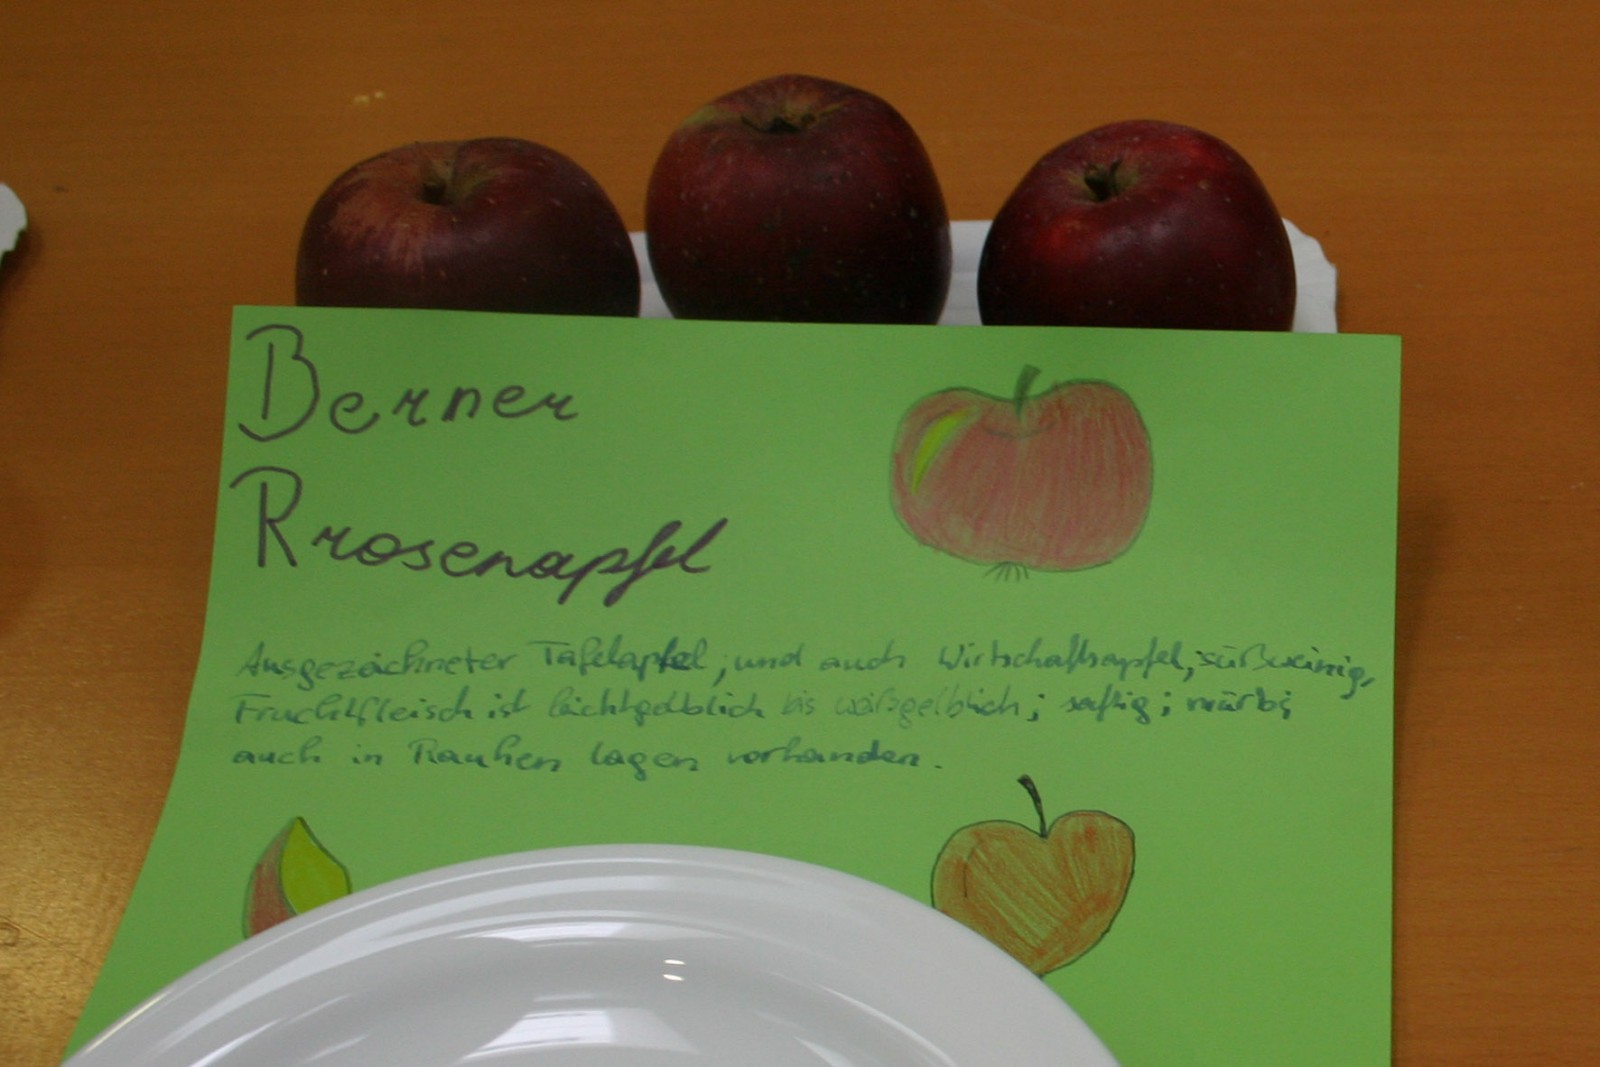 Berner
Rrosenapfel
Ausgezeichneter Tafelapfel, und auch Wirtschaftsapfel, süßweinig,
Fruchtfleisch ist leichtgelblich bis weißgelblich; saftig; mürb;
auch in Rauhen lagen vorhanden.